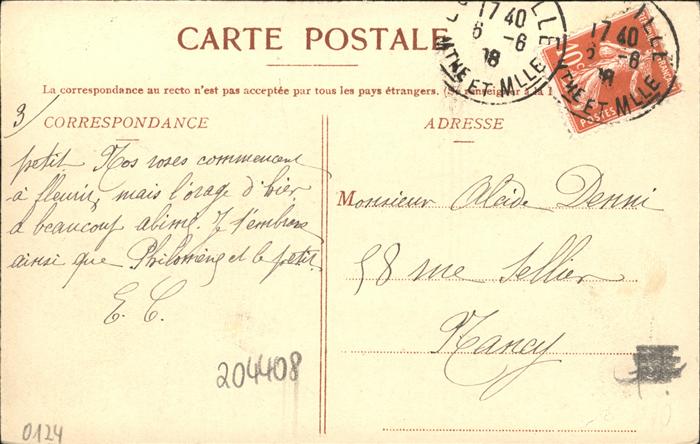 CARTE POSTALE
La correspondance au recto n'est pas acceptée par tous les pays étrangers. (Se renseigner à la
3/
CORRESPONDANCE
petit. Nos roses commencent
à fleurir, mais l'orage d'hier
a beaucoup abimé. Je t'embrasse
ainsi que Philomène et le petit.
E. C.
204408
0124
ADRESSE
Monsieur Alcide Denni
58 rue Sellier
Nancy
17 40
6 - 6
LLE
MTHE ET MLLE
ILLE
17 40
- 6
MTHE ET MLLE
10
POSTES